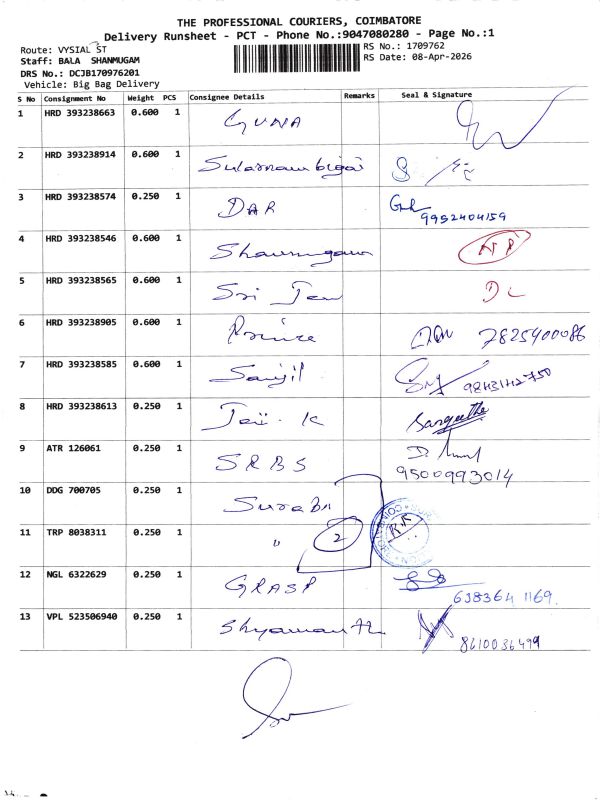 THE PROFESSIONAL COURIERS, COIMBATORE
Delivery Runsheet - PCT - Phone No.:9047080280 - Page No.:1
Route: VYSIAL ST
RS No.: 1709762
Staff: BALA SHANMUGAM
RS Date: 08-Apr-2026
DRS No.: DCJB170976201
Vehicle: Big Bag Delivery
S No Consignment No Weight PCS Consignee Details Remarks Seal & Signature
1 HRD 393238663 0.600 1 GUNA
2 HRD 393238914 0.600 1
3 HRD 393238574 0.250 1 DAR
9952404159
4 HRD 393238546 0.600 1 Shanmugam
5 HRD 393238565 0.600 1 Sri
6 HRD 393238905 0.600 1 Prince 7825400086
7 HRD 393238585 0.600 1
8 HRD 393238613 0.250 1 K Sangeetha
9 ATR 126061 0.250 1 SRBS
9500993014
10 DDG 700705 0.250 1
11 TRP 8038311 0.250 1 " 2
12 NGL 6322629 0.250 1 GRASP
638364 1169.
13 VPL 523506940 0.250 1
8610036499